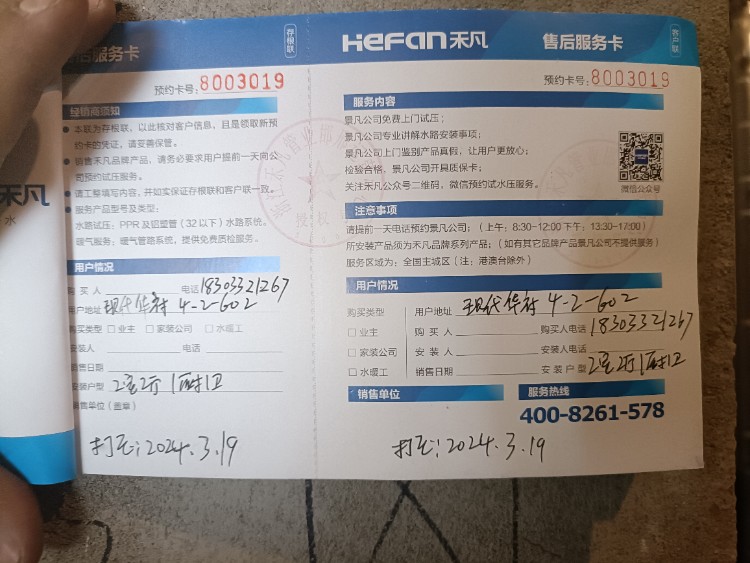 售后服务卡
存根联
预约卡号:8003019
经销商须知
● 本联为存根联,以此核对客户信息,且是领取新预
约卡的凭证,请妥善保管。
● 销售禾凡品牌产品,请务必要求用户提前一天向公
司预约试压服务。
● 请工整填写内容,并如实保证存根联和客户联一致。
● 服务产品型号及类型:
水路试压:PPR及铝塑管(32以下)水路系统。
暖气服务:暖气管路系统,提供免费质检服务。
用户情况
购买人 电话18303321267
用户地址 现代华府 4-2-602
购买类型 □业主 □家装公司 □水暖工
安装人 电话
销售日期
安装户型 2室2厅1厨1卫
销售单位(盖章)
打压:2024.3.19
禾凡
水
HeFan禾凡
售后服务卡
客户联
预约卡号:8003019
服务内容
景凡公司免费上门试压;
景凡公司专业讲解水路安装事项;
景凡公司上门鉴别产品真假,让用户更放心;
检验合格,景凡公司开具质保卡;
关注禾凡公众号二维码,微信预约试水压服务。
微信公众号
注意事项
请提前一天电话预约景凡公司;(上午:8:30-12:00下午:13:30-17:00)
所安装产品须为禾凡品牌系列产品;(如有其它品牌产品景凡公司不提供服务)
服务区域为:全国主城区(注:港澳台除外)
用户情况
购买类型 用户地址 现代华府 4-2-602
□业主 购买人 购买人电话18303321267
□家装公司 安装人 安装人电话
□水暖工 销售日期 安装户型 2室2厅1厨1卫
销售单位 服务热线
400-8261-578
打压:2024.3.19